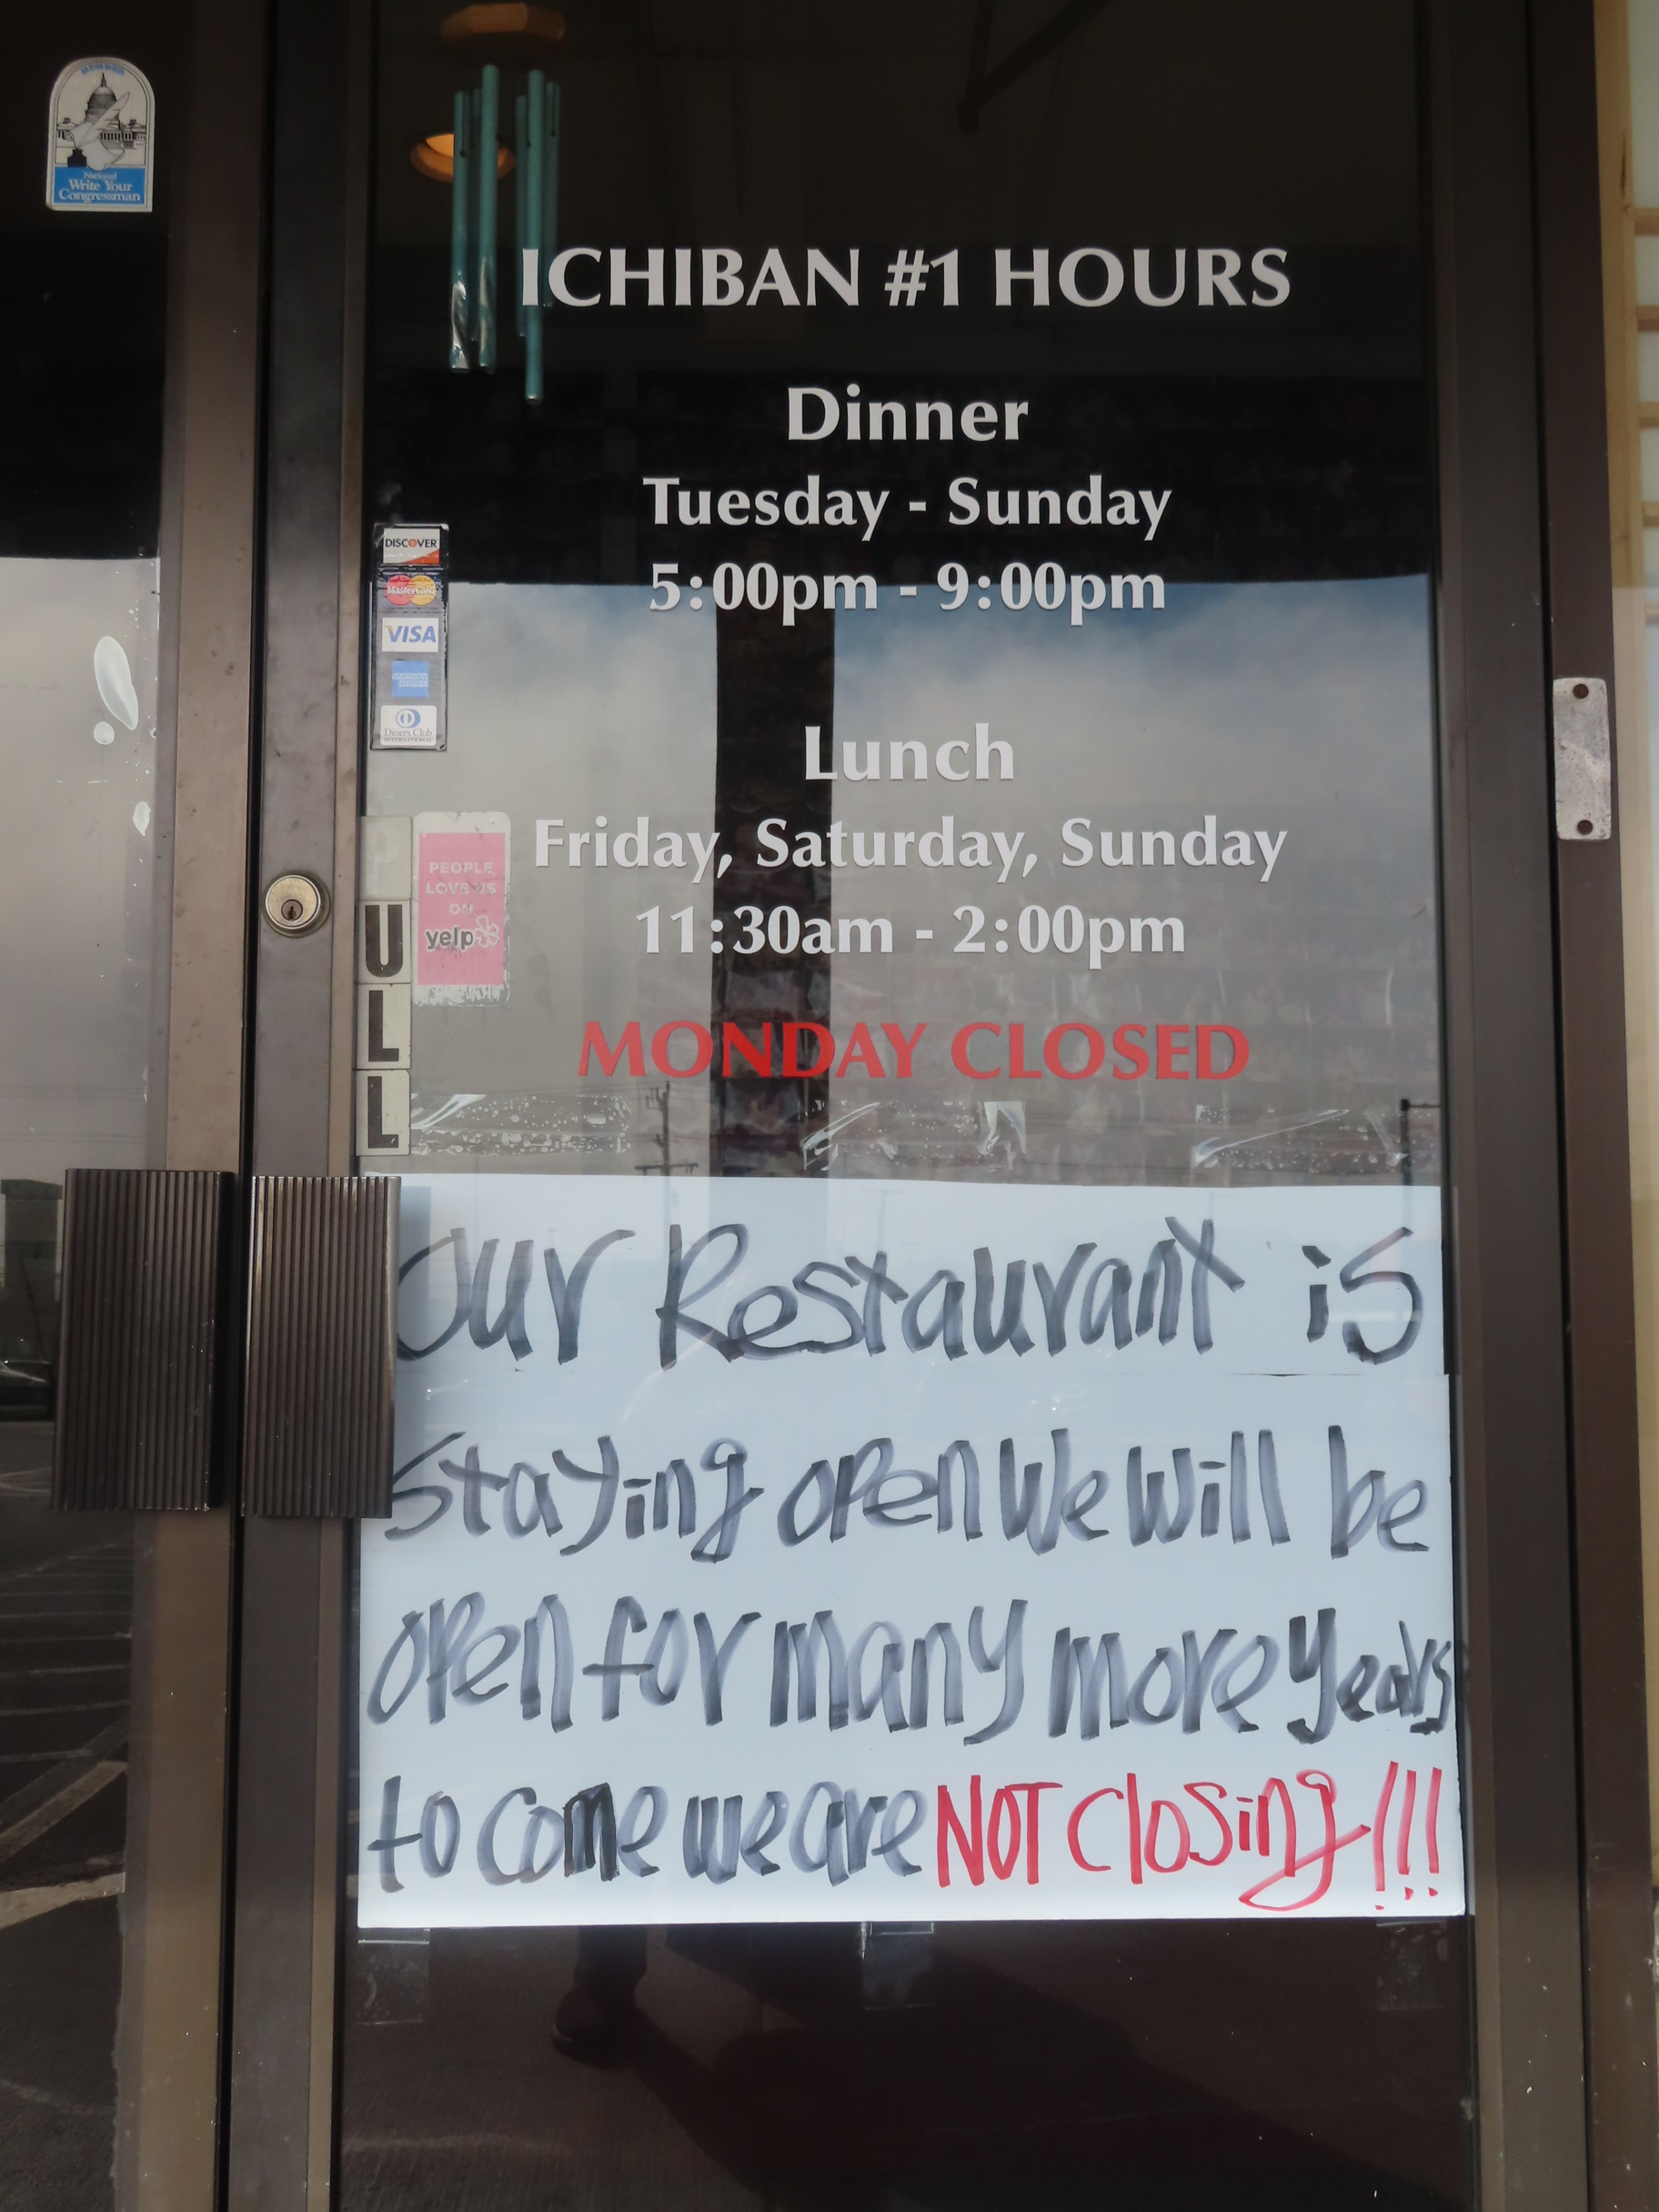 National
Write Your
Congressman
ICHIBAN #1 HOURS
Dinner
Tuesday - Sunday
5:00pm - 9:00pm
Lunch
Friday, Saturday, Sunday
11:30am - 2:00pm
MONDAY CLOSED
DISCOVER
MasterCard
VISA
AMERICAN
EXPRESS
Diners Club
INTERNATIONAL
PULL
PEOPLE
LOVE US
ON
yelp
Our Restaurant is
Staying open We will be
open for many more years
to come we are NOT closing!!!